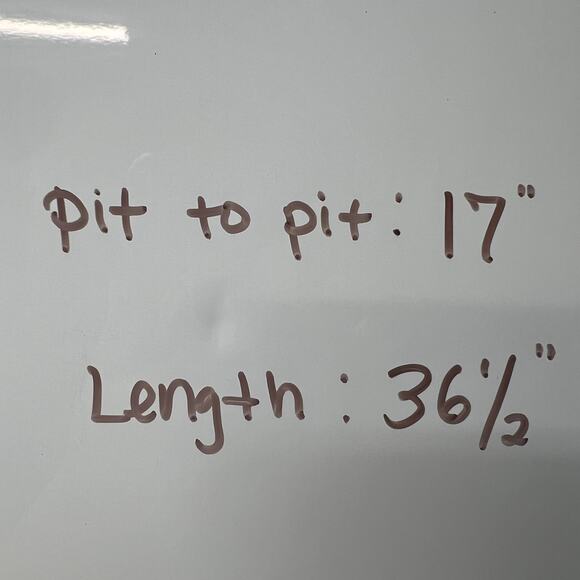 pit to pit: 17"
Length: 36 1/2"